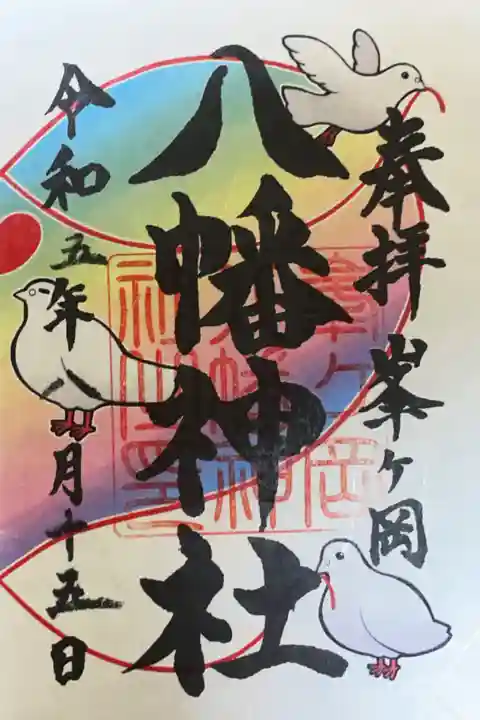 奉拝 峯ヶ岡
八幡神社
令和五年八月十五日
峯ケ岡
八幡神
社之印